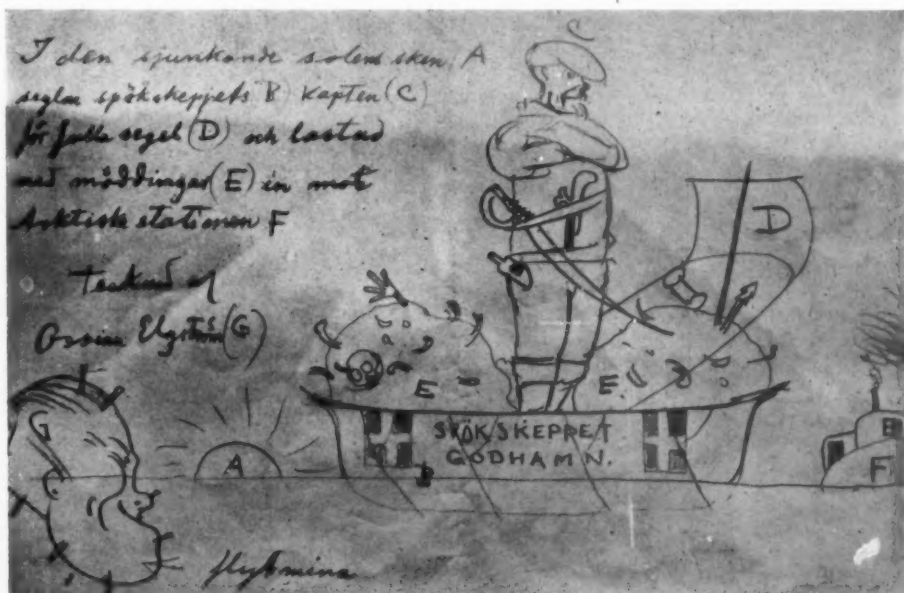 I den sjunkande solens sken A
seglar spökskeppets B) Kapten (C)
för fulla segel (D) och lastad
med möddingar (E) in mot
Arktiska stationen F
Tecknad af
Ossian Elgström (G)
C
D
E
E
SPÖKSKEPPET
GODHAMN.
A
B
F
G
flytmina